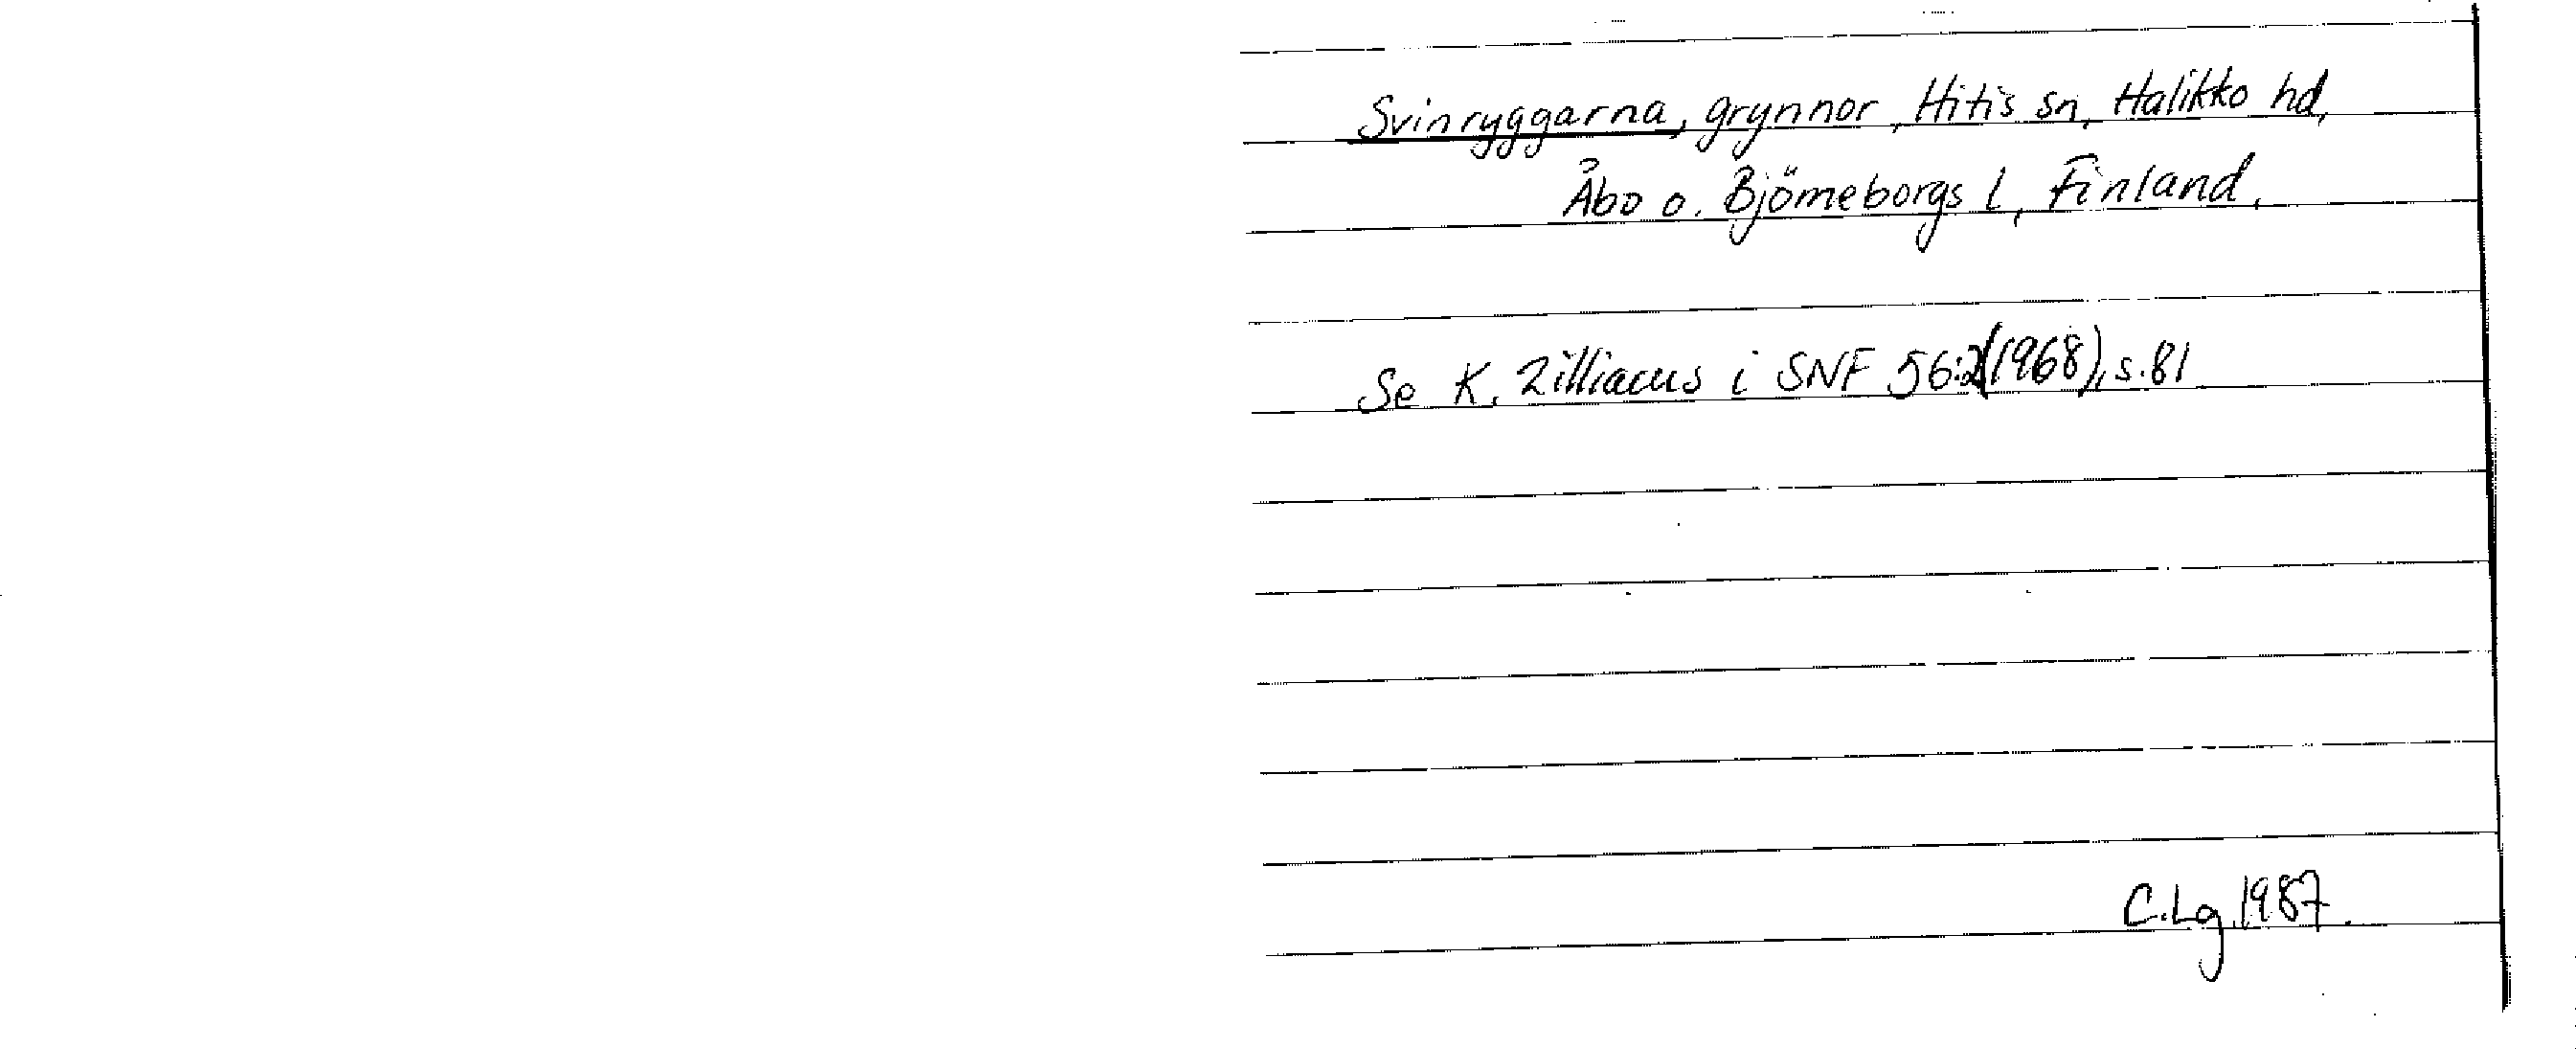 Svinryggarna, grynnor, Hitis sn, Halikko hd,
Åbo o. Björneborgs l, Finland,
Se K. Zilliacus i SNF 56:2(1968), s.81
C.Lg.1987.